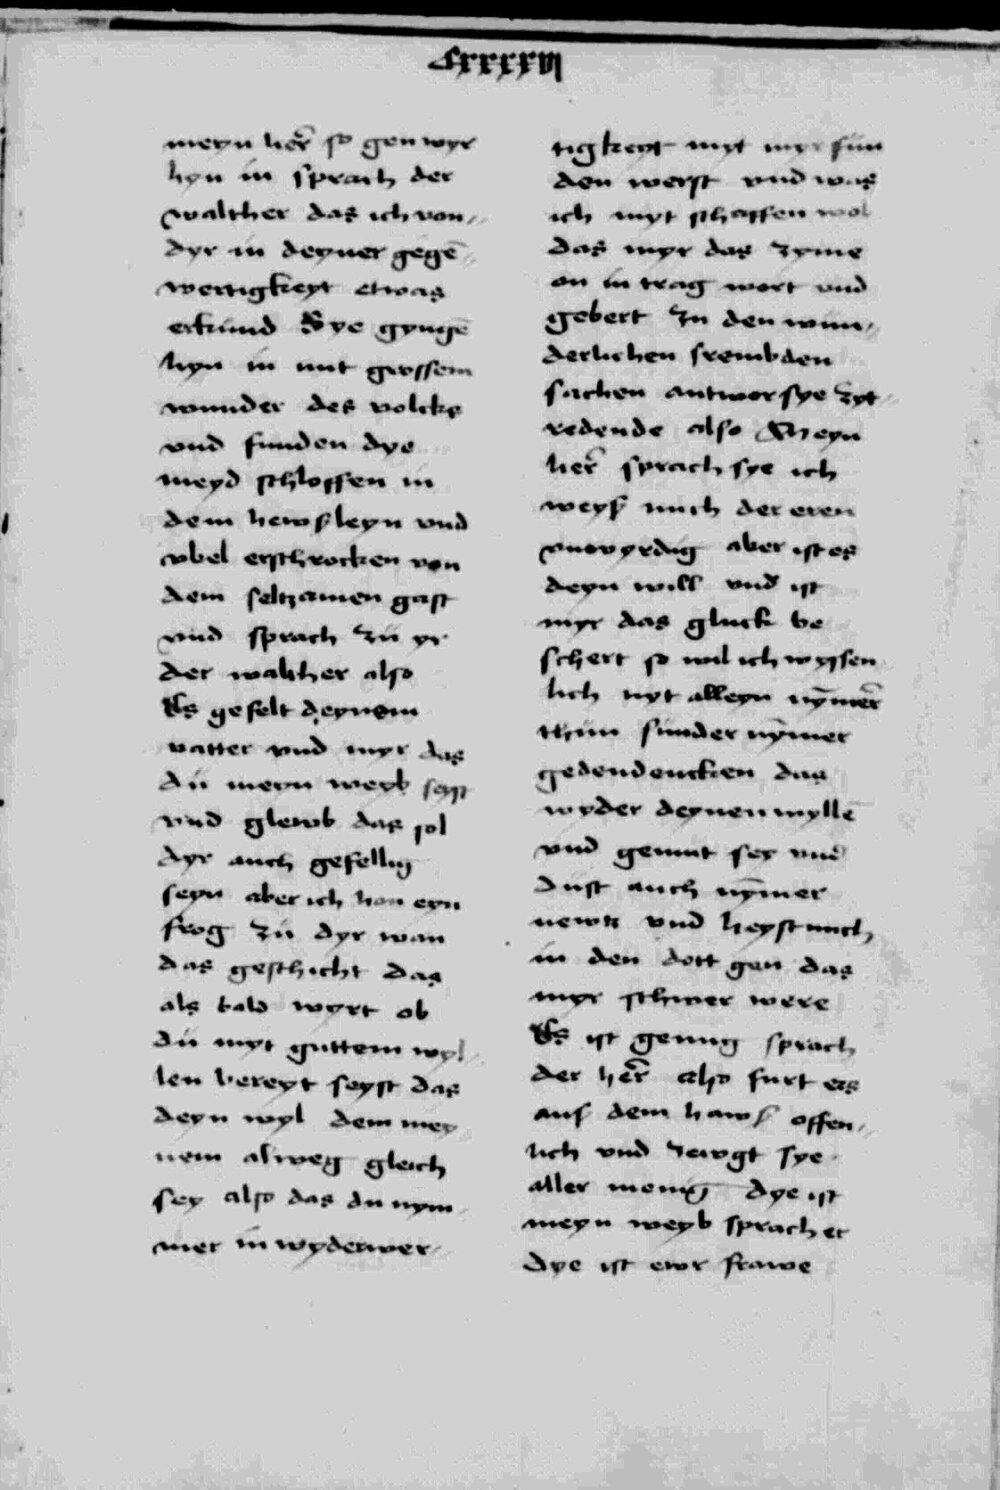 Cxxxxvi
meyn her̄ so gen wyr
hyn in sprach der
walther das ich von⸗
dyr in deyner gegē⸗
wertigkeyt etwas
erkund Sye gyngē
hyn in mit grossem
wunder des volcks
vnd funden dye
meyd schlossen in
dem hewsleyn vnd
vbel erschrocken von
dem seltzamen gast
vnd sprach zü yr
der walther also
Es gefelt deynem
vatter vnd myr das
dü meyn weyb seyst
vnd glewb das sol
dyr auch gefellig
seyn aber ich han eyn
frog zü dyr wan
das geschicht das
als bald wyrt ob
dü myt guttem wyl⸗
len bereyt seyst das
deyn wyl dem mey⸗
nem alweg gleich
sey also das du nym⸗
mer in wyderwer⸗
tigkeyt myt myr fun
den werst vnd was
ich myt schaffen wol
das myr das zyme
on in trag wort vnd
gebert Zu den wun⸗
derlichen frembden
sachen antwor sye zyt⸗
redende also Meyn
her̄ sprach sye ich
weys mich der eren
vnwyrdig aber ist es
deyn will vnd ist
myr das gluck be
schert so wil ich wyssen
lich nyt alleyn nȳmer̄
thun sunder nȳmer
gedendencken das
wyder deynen wyllē
vnd gemut sey vnd
düst auch nȳmer
newtz vnd heyst mich
in den dott gen das
myr schwer were
Es ist genug sprach
der her̄ also furt ers
aus dem haws offen⸗
lich vnd zewgt sye
aller menig dye ist
meyn weyb sprach er
dye ist ewr frawe